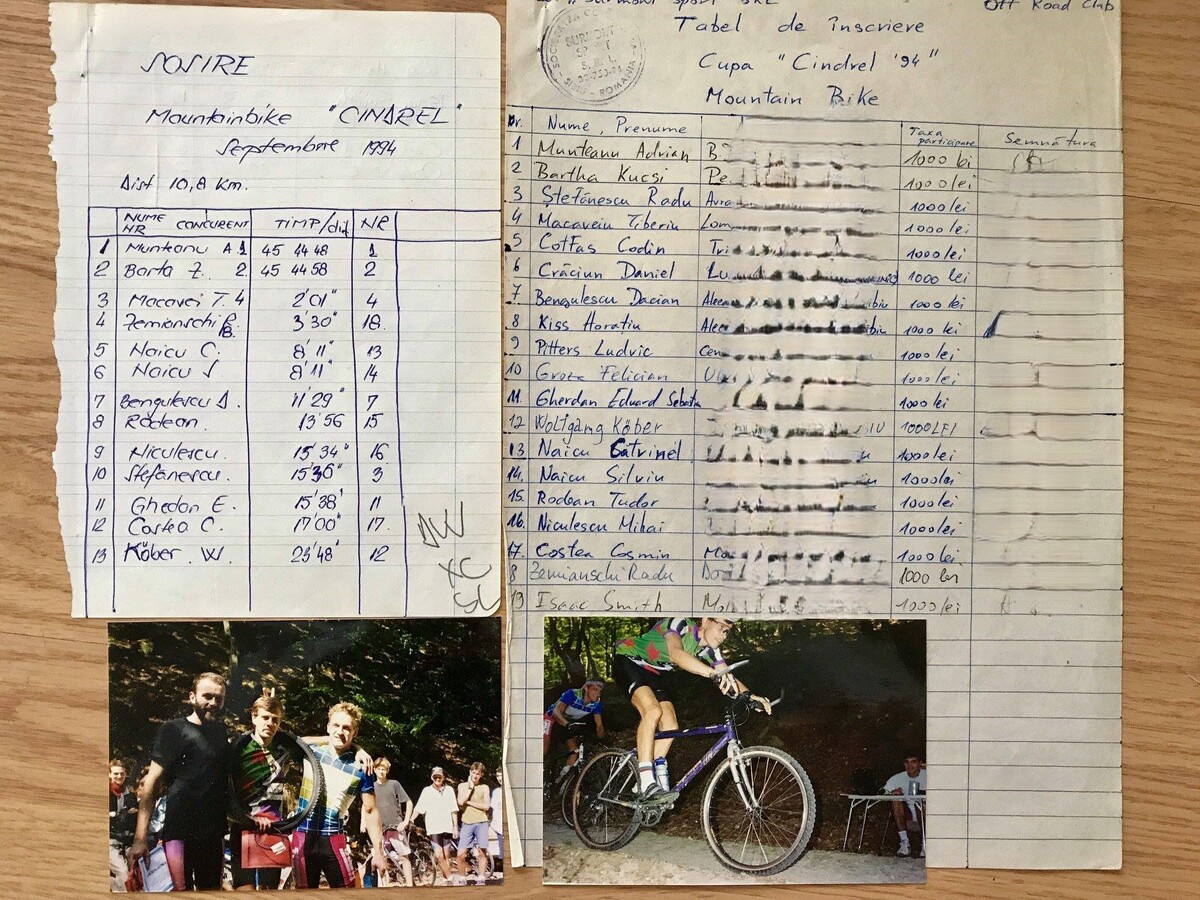 SOSIRE
Mountainbike "CINDREL"
Septembrie 1994
Dist 10,8 Km.
NUME CONCURENT NR TIMP/dif NR
1 Munteanu A. 1 45 44 48 1
2 Barta Z. 2 45 44 58 2
3 Macavei T. 4 2'01" 4
4 Zemianschi R. 18. 3'30" 18.
5 Naicu C. 8'11" 13
6 Naicu S 8'11" 14
7 Bengulescu D. 11'29" 7
8 Rodean. 13'56 15
9 Niculescu. 15'34" 16
10 Stefănescu. 15'36" 3
11 Ghedan E. 15'38' 11
12 Costea C. 17'00" 17.
13 Köber. W. 23'48" 12
XC
Off Road Club
Tabel de înscriere
Cupa "Cindrel '94"
Mountain Bike
SURMONT SPORT S.R.L.
SIBIU - ROMANIA
Nr. Nume, Prenume Taxa participare Semnătura
1 Munteanu Adrian B. 1000 lei
2 Bartha Kucsi Pe 1000 lei
3 Ștefănescu Radu Avra 1000 lei
4 Macaveiu Tiberiu Lom 1000 lei
5 Cotfas Codin Tri 1000 lei
6 Crăciun Daniel Lu 1000 lei
7. Bengulescu Dacian Alee ibiu 1000 lei
8 Kiss Horatiu Alee ibiu 1000 lei
9 Pitters Ludvic Cen 1000 lei
10 Groza Felician U 1000 lei
11. Gherdan Eduard Sebastia 1000 lei
12 Wolfgang Köber IU 1000 LEI
13. Naicu Catrinel u 1000 lei
14. Naicu Silviu 1000 lei
15. Rodean Tudor 1000 lei
16. Niculescu Mihai 1000 lei
17. Costea Cosmin Ma 1000 lei
8 Zemianschi Radu Do 1000 lei
19 Isaac Smith Mol 1000 lei